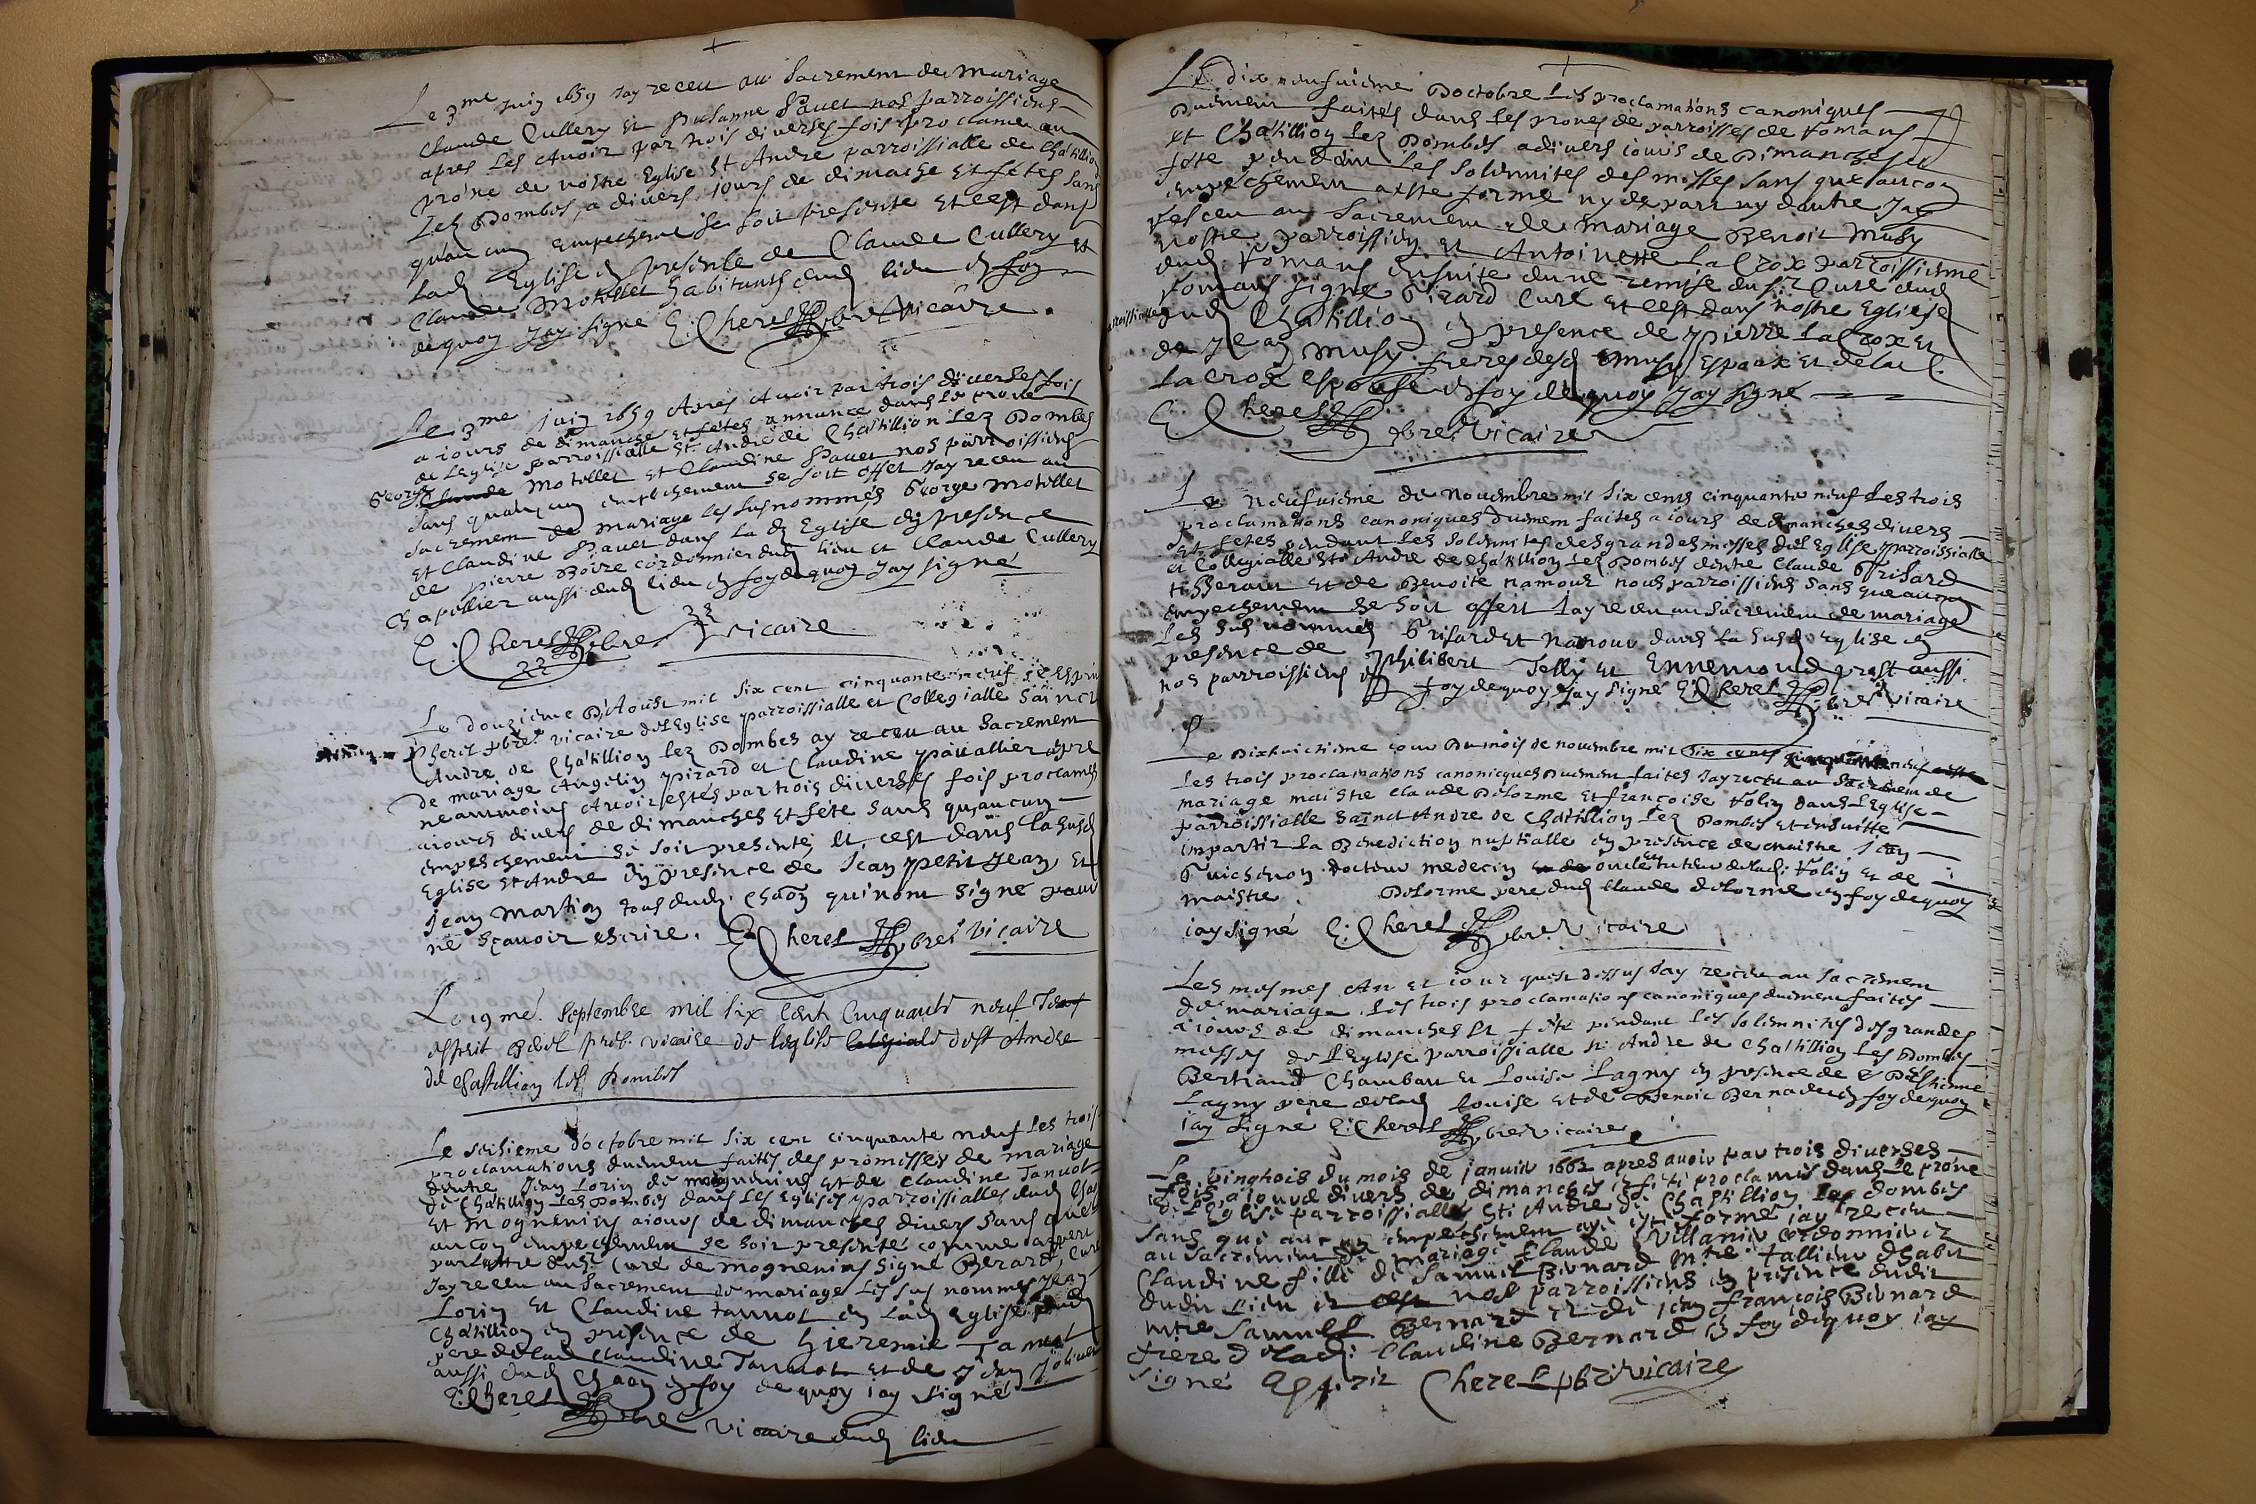 Le 3me juin 1659 Jay receu au Sacrement de Mariage
Claude Cullery Et Susanne Pauet nos parroissiens
apres Les Auoir par trois diuerses fois proclamé au
prone de nostre Eglise St Andre parroissialle de Chatillion
Lez Dombes, a diuers jours de dimache Et fetes Sans
quaucun empecheme se soit presenté Et cest dans
Lad Eglise en presence de Claude Cullery Et
Claude Motillet habitants dud lieu en foy
dequoy Jay signé E. Cherel pbre Vicaire.
Le 3me juin 1659 Apres Auoir par trois diuerses fois
a jours de dimanche et fetes annoncé dans le prone
de l'eglise parroissialle St Andre de Chatillion Lez Dombes
George Claude Motillet Et Claudine Pauet nos parroissiens
sans qualcun empechement se soit offet Jay receu au
sacrement de mariage les susnommés George Motillet
Et Claudine Pauet dans la d Eglise en presence
de Pierre Boire cordonnier dud lieu et Claude Cullery
Chapellier aussi dud lieu en foy dequoy Jay signé
E. Cherel pbre vicaire
Le douzieme D'Aoust mil six cent cinquante neuf Je Esprit
Cherel pbre vicaire de l'Eglise parroissialle et Collegialle Sainct
Andre de Chatillion lez Dombes ay receu au Sacrement
de mariage Angelin Pirard et Claudine Pauallier apre
neanmoins Auoir estés par trois diuerses fois proclamés
a jours diuers de dimanches Et féte sans qu'aucun
empeschement se soit presenté, Et cest dans la susd
Eglise St Andre En presence de Jean petit Jean Et
Jean Martion tous dud. Chaon qui nont signé pour
ne sçauoir escrire. E. Cherel pbre Vicaire
Le 19me. Septembre mil six cent cinquante neuf Je
esprit Cherel preb. vicaire de leglise collegiale de st Andre
de Chastillion les Dombes
Le seisieme d'octobre mil six cen cinquante neuf les trois
proclamations duëment faittes des promesses de mariage
d'entre Jean Lorin de mogneneins et de Claudine Tanuot
de Chatillion Lez Dombes dans Les Eglises parroissialles dud Chaon
Et Mogneneins a jours de dimanches diuers Sans que
aucon empechement se soit presenté comme appert
par lettre du Sr Curé de mogneneins signé Berard, Curé
Jay receu au Sacrement de mariage Les sus nommés Jean
Lorin Et Claudine tannot en Lad Eglise dud
Chatillion en presence de hieremie Tanuot
pere de lad Claudine Tanuot et de Jean Joliuet
aussi dud Chaon en foy de quoy jay signé
E. Cherel pbre vicaire dud lieu
Le dix neufuieme Doctobre Les proclamations canoniques
Duëment faites dans les prones de parroisses de Romans
et Chatillion Lez Dombes a diuers jours de Dimanche et
féte pendan Les solemnités des messes sans que aucon
empechemen aeste formé ny de part ny dautre Jay
receu au Sacrement de Mariage Benoit Musy
nostre parroissien et Antoinette La Crox parroissienne
dud Romans ensuite dune remise du Sr Curé dud
Romans signé Girard Curé Et cest dans nostre Egliese
parroissialle dud Chatillion en presence de Pierre Lacrox Et
de Jean Musy freres desd Musy Espoux Et de lad.
Lacrox espouse en foy de quoy Jay signé
E Cherel pbre Vicaire
Le Neufuieme de Nouembre mil six cens cinquante neuf Les trois
proclamations canoniques duëmem faites a jours de dimanches diuers
Et fetes pendant Les solemnités des grandes messes de l'Eglise parroissialle
et Collegialle St Andre de Chatillion Lez Dombes dentre Claude Grisard
tisseraut Et de Benoite namour nous parroissiens sans que aucun
empechement se soit offert Jay receu au Sacrement de mariage
Les sus nommés Grisard et Namour dans la susd Eglise en
presence de Philibert Telly et Ennemond prost aussi
nos parroissiens en foy dequoy Jay signé E. Cherel pbre vicaire
Le Dixhuictieme jour Du mois de nouembre mil six cents cinquante neuf
Les trois proclamations canonicques Duëment faites Jay receu au Sacremen de
mariage maistre Claude Delorme Et francoise Folin dans l'Eglise
parroissialle Sainct Andre de Chatillion Lez Dombes et ensuitte
impartir La Benediction nuptialle en presence de maistre Jean
Guichenon Docteur medecin oncle Et tuteur de lad. Folin et de
maistre Delorme pere dud Claude delorme en foy dequoy
jay signé E. Cherel pbre. Vicaire
Les mesmes An et jour que dessus Jay receu au sacremen
de mariage les trois proclamations canoniques duëmen faites
a jours de dimanches et féte pendant Les solemnités des grandes
messes de l'Eglise parroissialle St Andre de Chatillion Lez Dombes
Bertrand Chamban et Louise Lagny en presence de Estienne
Lagny pere de lad Louise et de Benoit Bernade en foy dequoy
jay signé E. Cherel pbre vicaire
Le vingtrois du mois de januier 1662 apres auoir par trois diuerses
fois a jours diuers de dimanches et féte proclamés dans le prone
de l'Eglise parroissialle St Andre de Chastillion les dombes
sans que aucun empechement aye esté formé jay receu
au sacrement de mariage Claude Villanis cordonnier et
Claudine fille de Samuel Bernard mtre tallieur dhabit
dudit Lieu et nos parroissiens en presence dudit
mtre Samuel Bernard et de jean françois Bernard
frere de lad. Claudine Bernard en foy dequoy jay
signé Esprit Cherel pbre vicaire